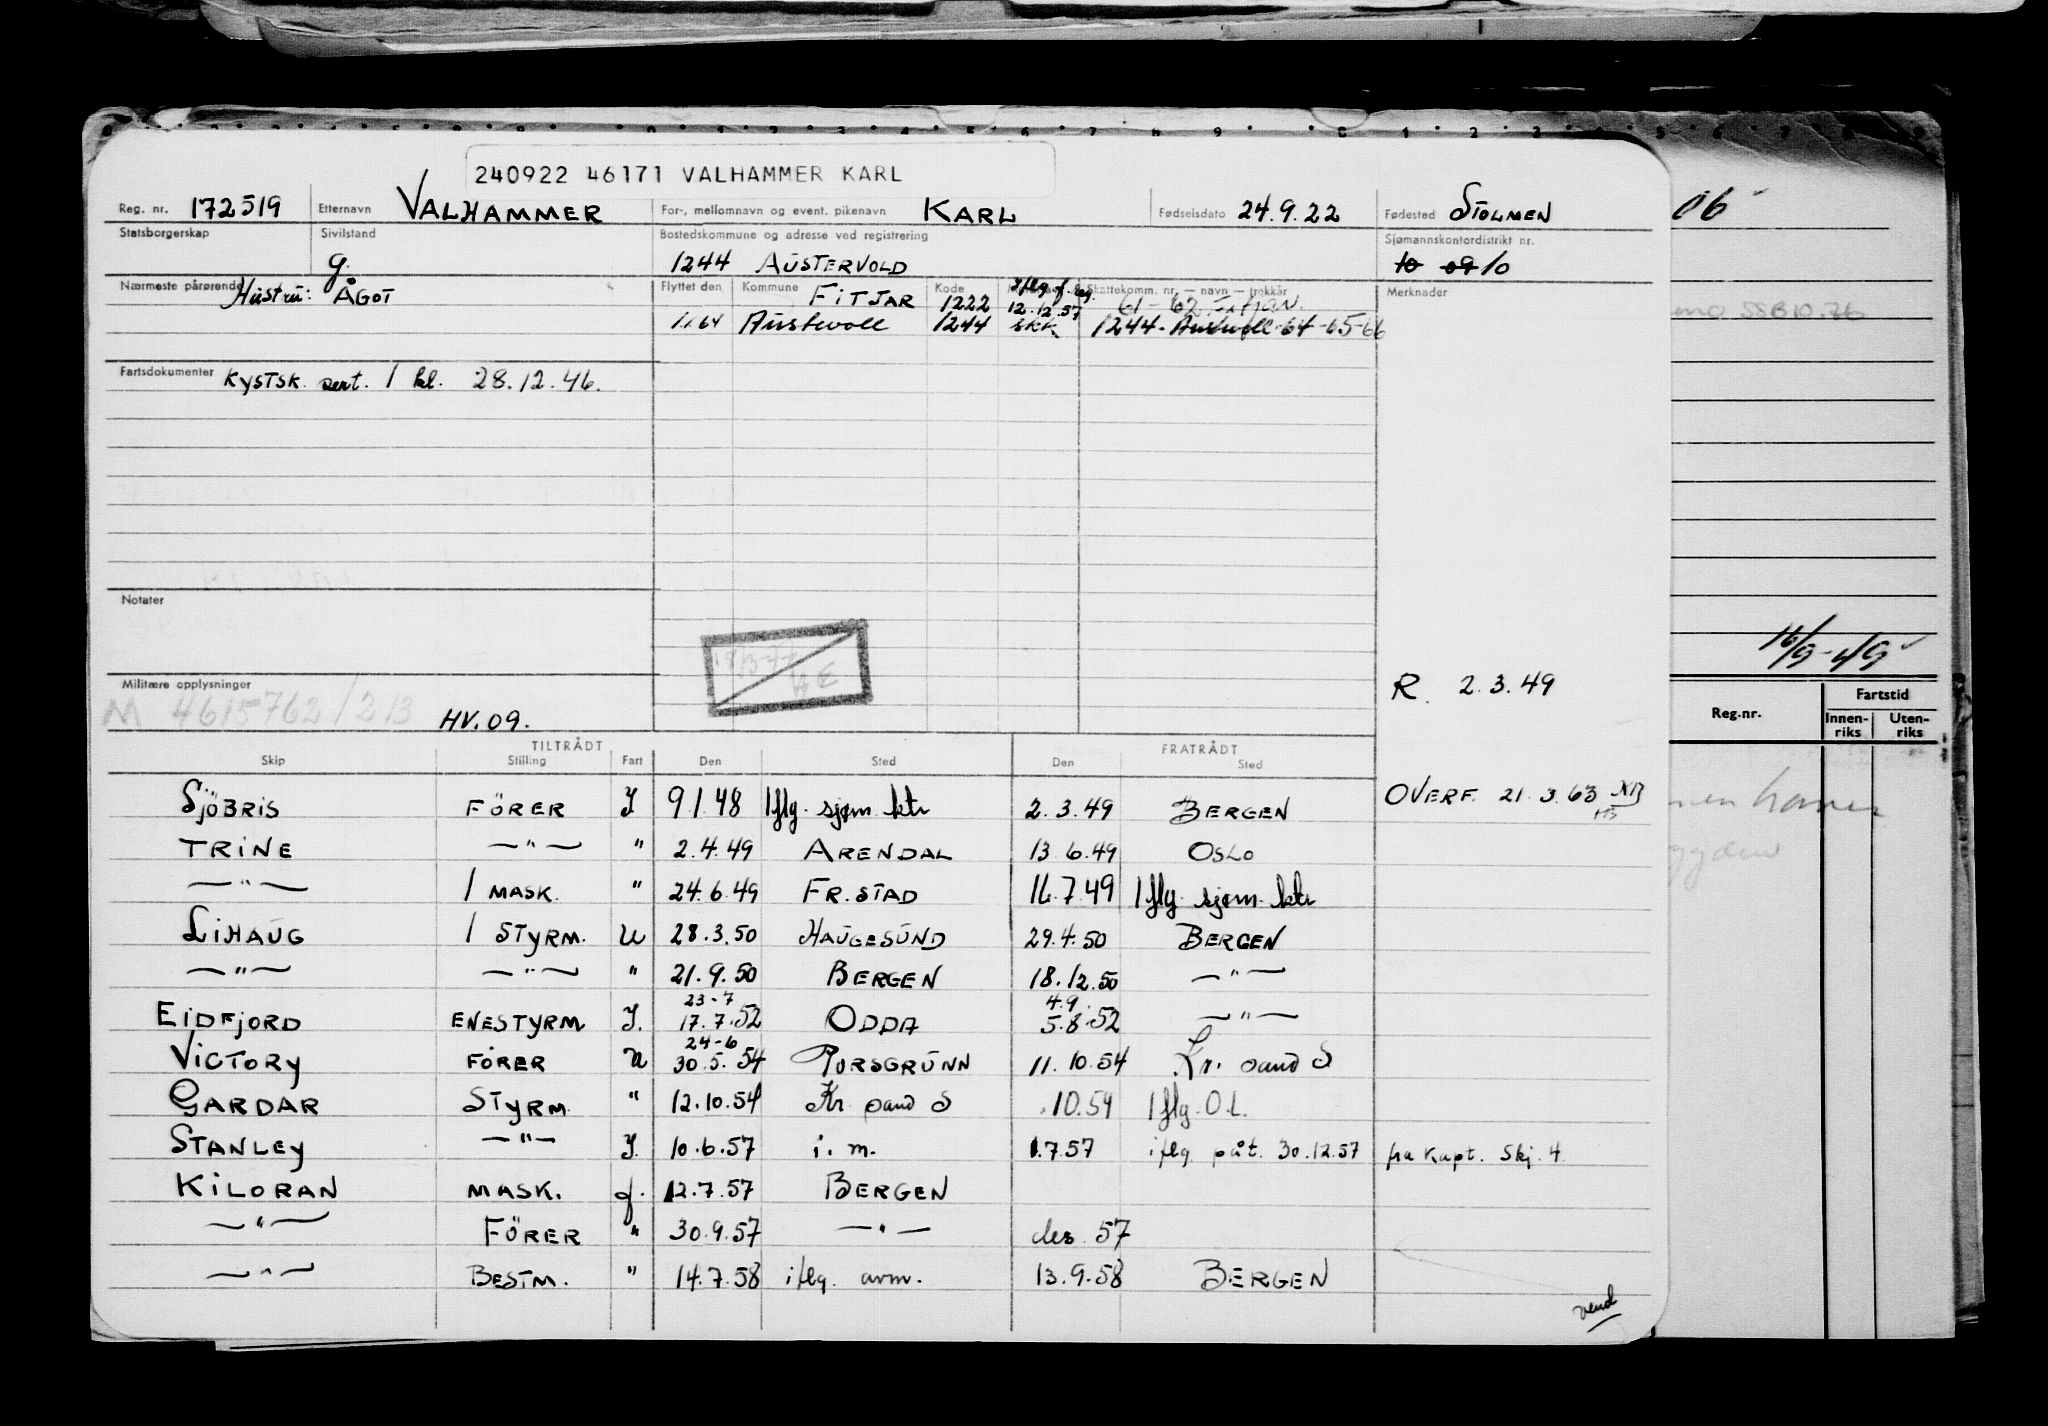 240922 46171 VALHAMMER KARL
Reg. nr. 172519 Etternavn VALHAMMER For-, mellomnavn og event. pikenavn KARL Fødselsdato 24.9.22 Fødested STOLMEN
Statsborgerskap Sivilstand g. Bostedskommune og adresse ved registrering 1244 AUSTERVOLD Sjømannskontordistrikt nr. 10 09 10
Nærmeste pårørende Hustru: ÅGOT Flyttet den Kommune FITJAR Kode 1222 iflg. 12.12.57 Skattekomm. nr. — navn — trekkår 61-62 Fitjar. Merknader
1.1.64 Austevoll 1244 skk 1244 - Austevoll-64-65-66
Fartsdokumenter KYSTSK. sert. 1 kl. 28.12.46.
Notater
18/3-77
Militære opplysninger
M 4615762/213 HV.09.
R. 2.3.49
TILTRÅDT FRATRÅDT
Skip Stilling Fart Den Sted Den Sted
SJÖBRIS FÖRER I 9.1.48 Iflg. sjøm. ktr 2.3.49 BERGEN OVERF. 21.3.63
TRINE —"— " 2.4.49 ARENDAL 13.6.49 OSLO
—"— 1 MASK. " 24.6.49 FR.STAD 16.7.49 Iflg. sjøm. ktr
LIHAUG 1 STYRM. U 28.3.50 HAUGESUND 29.4.50 BERGEN
—"— —"— " 21.9.50 BERGEN 18.12.50 —"—
23-7 4.9.
EIDFJORD ENESTYRM I. 17.7.52 ODDA 5.8.52 —"—
24-6
VICTORY FÖRER U 30.5.54 PORSGRUNN 11.10.54 Kr. sand S
GARDAR STYRM. " 12.10.54 Kr. sand S .10.54 Iflg. O.L.
STANLEY —"— I. 10.6.57 i.m. 1.7.57 iflg. påt. 30.12.57 fra Kapt. Skj. 4.
KILORAN MASK. f. 12.7.57 BERGEN
—"— FÖRER " 30.9.57 —"— des. 57
—"— BESTM. " 14.7.58 iflg. avm. 13.9.58 BERGEN
vend
06
16/9-49
Reg.nr. Fartstid
Innen-riks Uten-riks